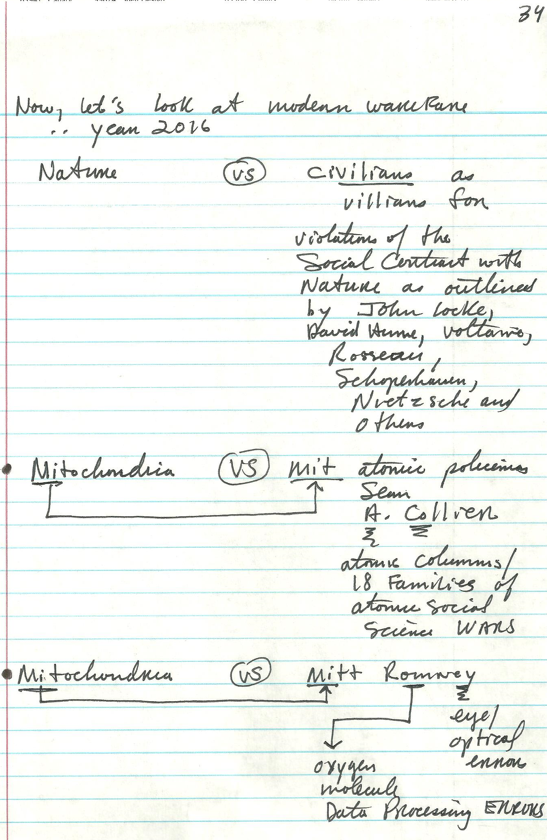 34
Now, let's look at modern warfare
.. year 2016
Nature vs civilians as
villians for
violations of the
Social Contract with
Nature as outlined
by John Locke,
David Hume, Voltaire,
Rosseau,
Schopenhauer,
Nietzsche and
others
• Mitochondria vs mit atomic policeman
Sean
A. Collier
atomic columns/
18 Families of
atomic social
science WARS
• Mitochondria vs Mitt Romney
eye/
optical
error
oxygen
molecule
Data Processing ERRORS